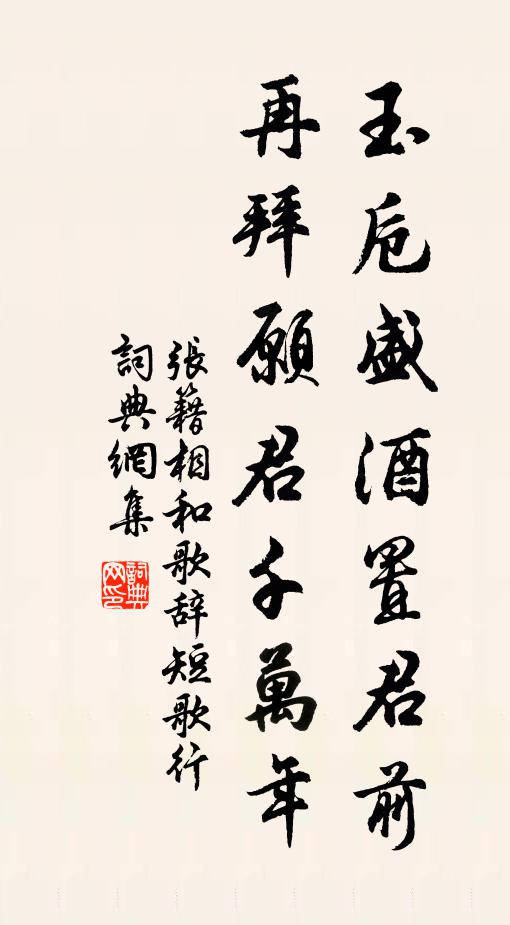 玉卮盛酒置君前
再拜願君千萬年
張籍相和歌辞短歌行
詞典網集
詞典网印